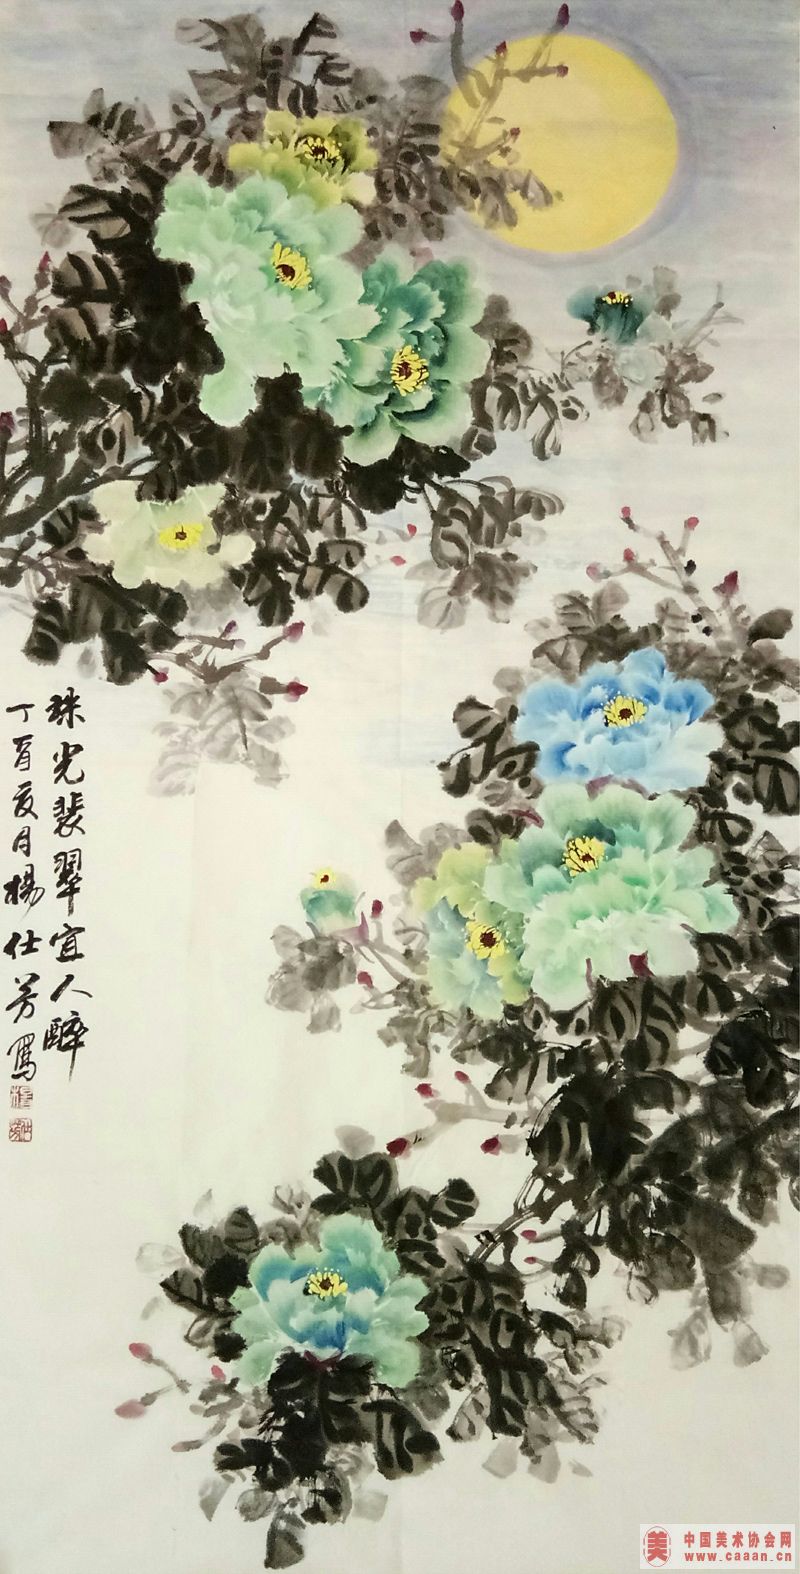 珠光裴翠宜人醉
丁酉夏月楊仕芳寫
中国美术协会网
www.caaan.cn